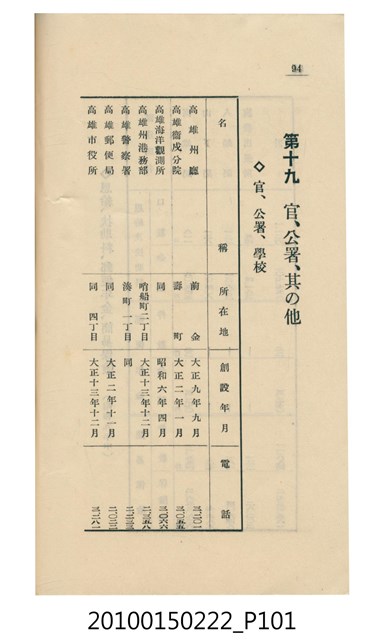 94
第十九 官、公署、其の他
◇官、公署、學校
名稱 所在地 創設年月 電話
高雄州廳 前金 大正九年九月
高雄衞戍分院 壽町 大正二年一月
高雄海洋觀測所 同 昭和六年四月
高雄州港務部 哨船町二丁目 大正十三年十二月
高雄警察署 湊町一丁目 同
高雄郵便局 同 大正二年十一月
高雄市役所 同 四丁目 大正十三年十二月
20100150222_P101